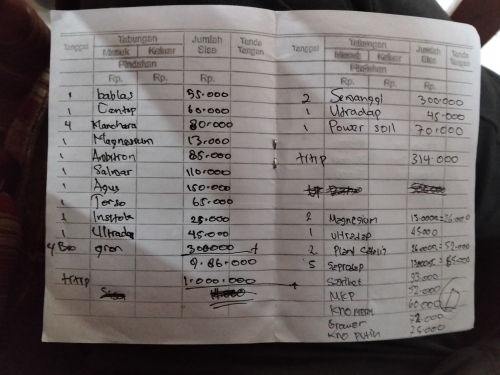 Tanggal Tabungan Jumlah Sisa Tanda Tangan
Masuk Keluar
Pindahan
Rp. Rp. Rp.
1 bablas 95.000
1 Centop 60.000
4 80.000
1 Magnesium 13.000
1 85.000
1 110.000
1 Agus 150.000
1 65.000
1 25.000
1 Ultradap 45.000
4 gron 300.000 +
9.86.000
titip 1.000.000
Tanggal Tabungan Jumlah Sisa Tanda Tangan
Masuk Keluar
Pindahan
Rp. Rp. Rp.
2 300.000
1 Ultradap 45.000
1 Power soil 70.000
titip 314.000
2 Magnesium 13.000=26.000
1 Ultradap 45000
2 Plant 26.000=52.000
5 13000=65.000
93.000
MKP 52.000
KNO 60.000
Grower 72.000
KNO Putih 26.000